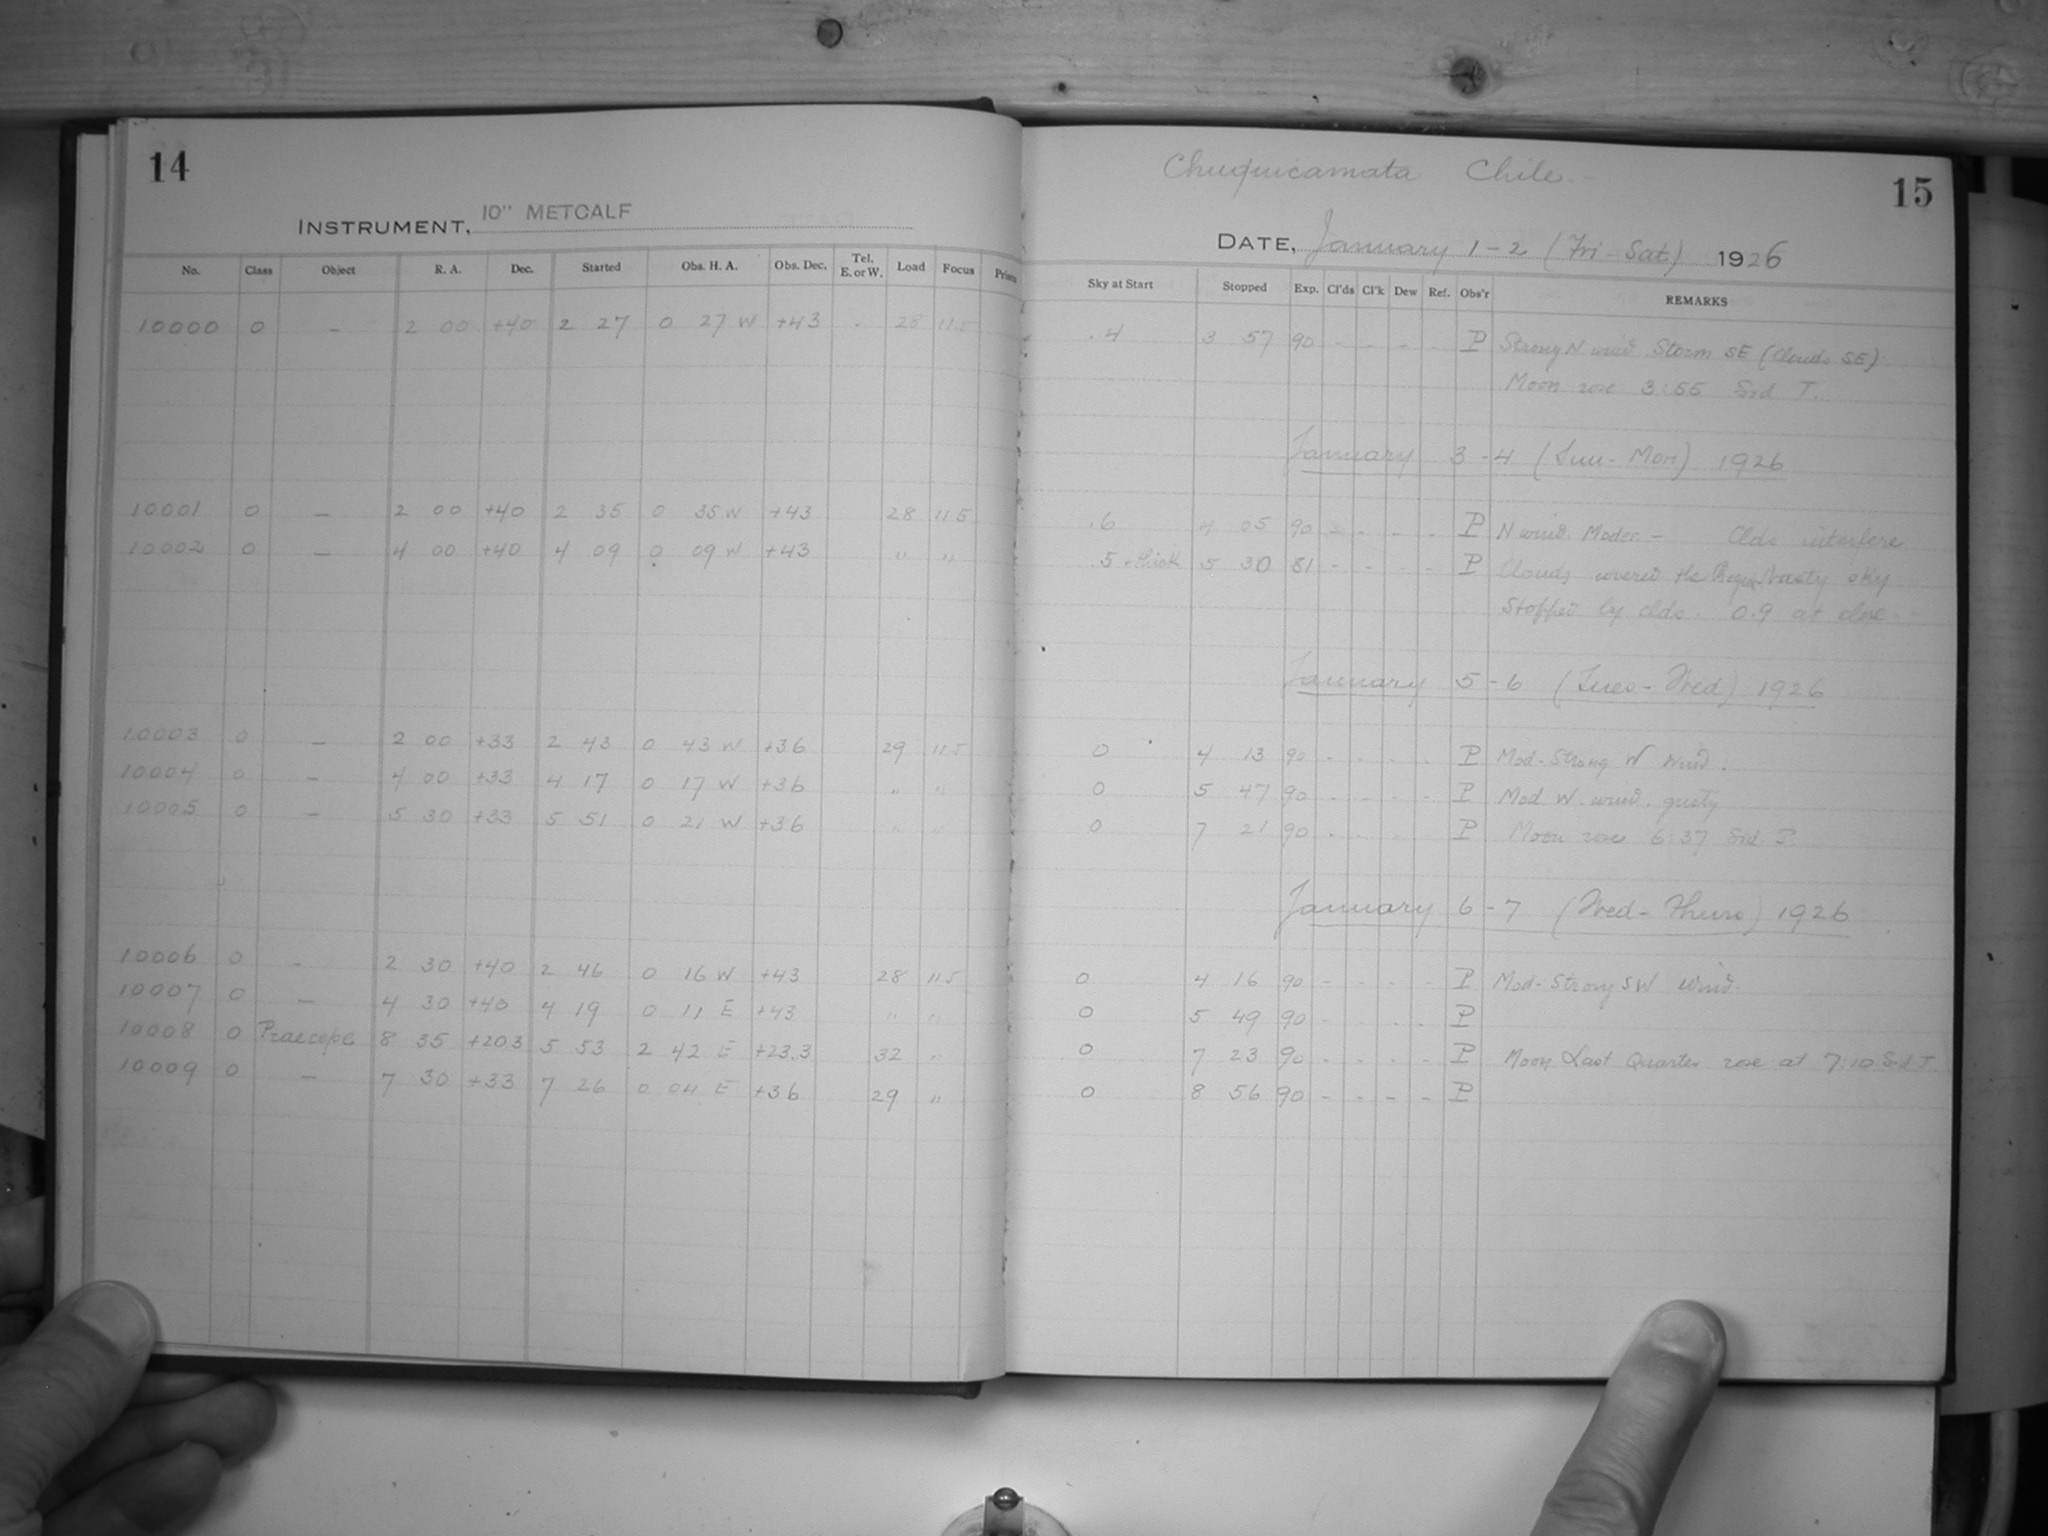 14
INSTRUMENT, 10" METCALF
No. Class Object R. A. Dec. Started Obs. H. A. Obs. Dec. Tel. E. or W. Load Focus
10000 0 – 2 00 +40 2 27 0 27 W +43 28 11.5
10001 0 – 2 00 +40 2 35 0 35 W +43 28 11.5
10002 0 – 4 00 +40 4 09 0 09 W +43 " "
10003 0 – 2 00 +33 2 43 0 43 W +36 29 11.5
10004 0 – 4 00 +33 4 17 0 17 W +36 " "
10005 0 – 5 30 +33 5 51 0 21 W +36 " "
10006 0 – 2 30 +40 2 46 0 16 W +43 28 11.5
10007 0 – 4 30 +40 4 19 0 11 E +43 " "
10008 0 Praecepe 8 35 +20.3 5 53 2 42 E +23.3 32 "
10009 0 – 7 30 +33 7 26 0 04 E +36 29 "
Chuquicamata Chile
15
DATE, January 1-2 (Fri-Sat) 1926
Sky at Start Stopped Exp. Cl'ds Cl'k Dew Ref. Obs'r REMARKS
.4 3 57 90 - - - - P Strong N wind Storm SE (Clouds SE)
Moon rose 3:55 Sid T.
January 3-4 (Sun-Mon) 1926
.6 4 05 90 - - - - P N wind Moder - Clds interfere
.5 + thick 5 30 81 - - - - P Clouds covered the hasty sky
Stopped by clds. 0.9 at close. -
January 5-6 (Tues-Wed) 1926
0 4 13 90 - - - - P Mod-Strong W wind.
0 5 47 90 - - - - P Mod. W. wind. gusty
0 7 21 90 - - - - P Moon rose 6:37 Sid T.
January 6-7 (Wed-Thurs) 1926
0 4 16 90 - - - - P Mod-Strong SW wind.
0 5 49 90 - - - - P
0 7 23 90 - - - - P Moon Last Quarter rose at 7:10 Sid T.
0 8 56 90 - - - - P